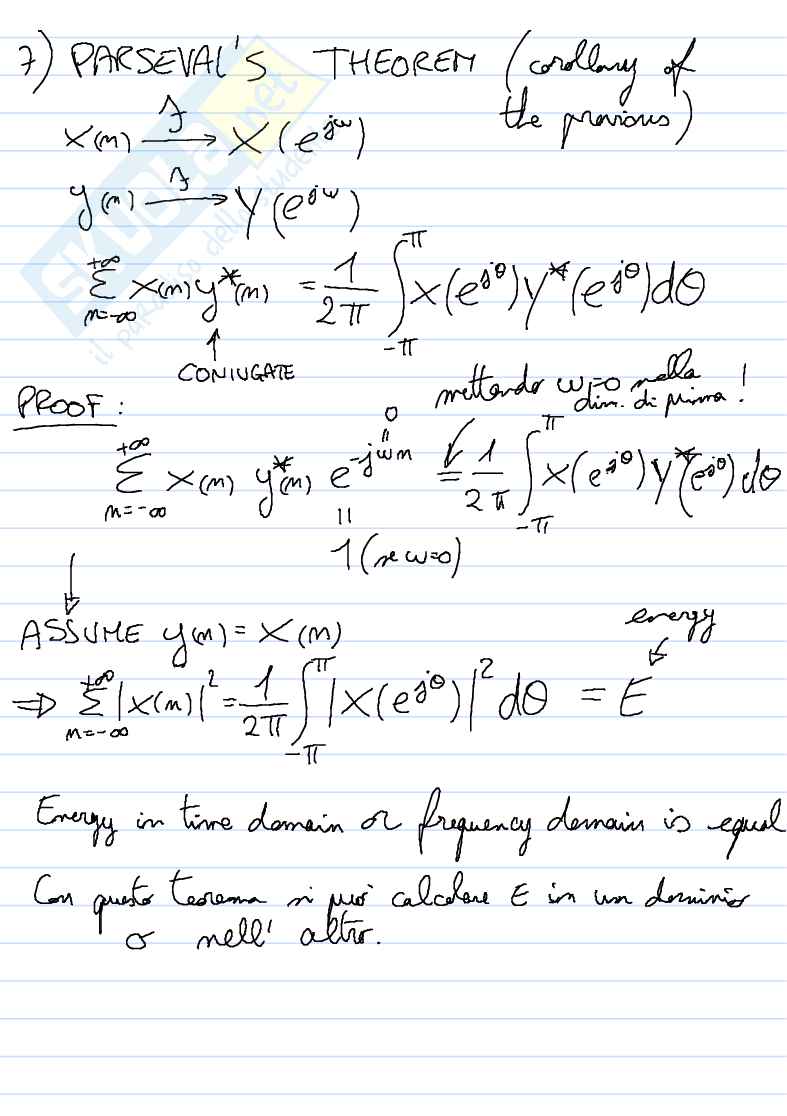 7) PARSEVAL'S THEOREM (corollary of
the previous)
x(n) —F→ X(e^{jω})
y(n) —F→ Y(e^{jω})
Σ_{n=-∞}^{+∞} x(n) y*(n) = 1/2π ∫_{-π}^{π} X(e^{jθ}) Y*(e^{jθ}) dθ
↑
CONIUGATE
mettendo ω=0 nella
dim. di prima!
PROOF:
0
=
Σ_{n=-∞}^{+∞} x(n) y*(n) e^{-jωn} = 1/2π ∫_{-π}^{π} X(e^{jθ}) Y*(e^{jθ}) dθ
=
1 (se ω=0)
↓
ASSUME y(n) = x(n)
energy
⇒ Σ_{n=-∞}^{+∞} |x(n)|² = 1/2π ∫_{-π}^{π} |X(e^{jθ})|² dθ = E
Energy in time domain or frequency domain is equal
Con questo teorema si può calcolare E in un dominio
o nell' altro.
SKUOLA.net